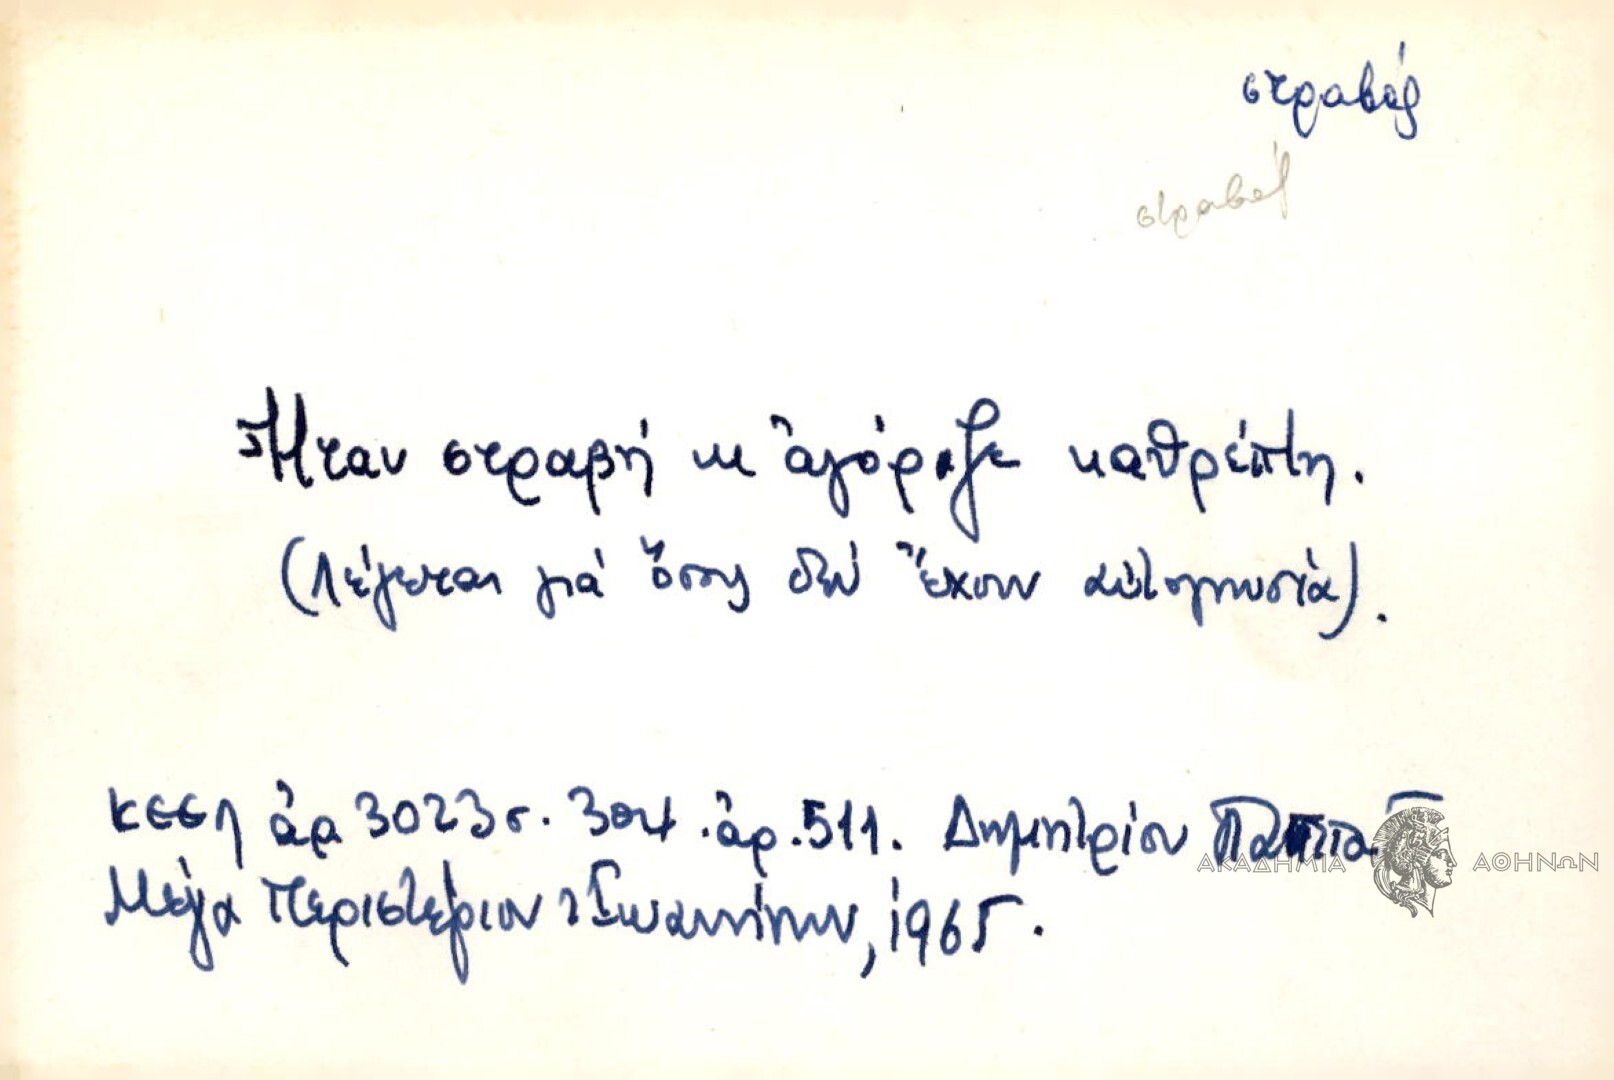 στραβός
στραβός
Ἦταν στραβή κι ἀγόραζε καθρέπτη.
(Λέγεται γιά ὅσους δέν ἔχουν αὐτογνωσία).
ΚΕΕΛ ἀρ 3023 σ. ἀρ. 511. Δημητρίου Παππα
Μέγα Περιστέριον Ἰωαννίνων, 1965.
ΑΚΑΔΗΜΙΑ ΑΘΗΝΩΝ